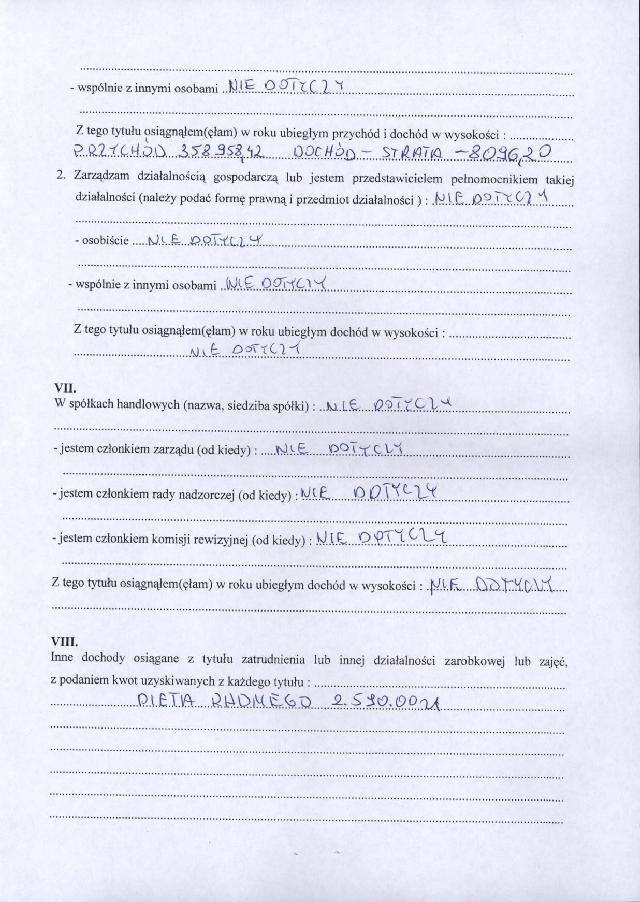 - wspólnie z innymi osobami ..NIE DOTYCZY
Z tego tytułu osiągnąłem(ęłam) w roku ubiegłym przychód i dochód w wysokości : ................
PRZYCHÓD 358958,42 DOCHÓD - STRATA -8096,20
2. Zarządzam działalnością gospodarczą lub jestem przedstawicielem pełnomocnikiem takiej
działalności (należy podać formę prawną i przedmiot działalności ) : NIE DOTYCZY
- osobiście .....NIE DOTYCZY
- wspólnie z innymi osobami ..NIE DOTYCZY
Z tego tytułu osiągnąłem(ęłam) w roku ubiegłym dochód w wysokości : ................
NIE DOTYCZY
VII.
W spółkach handlowych (nazwa, siedziba spółki) : ..NIE DOTYCZY
- jestem członkiem zarządu (od kiedy) : ....NIE DOTYCZY
- jestem członkiem rady nadzorczej (od kiedy) : NIE DOTYCZY
- jestem członkiem komisji rewizyjnej (od kiedy) : NIE DOTYCZY
Z tego tytułu osiągnąłem(ęłam) w roku ubiegłym dochód w wysokości : NIE DOTYCZY
VIII.
Inne dochody osiągane z tytułu zatrudnienia lub innej działalności zarobkowej lub zajęć,
z podaniem kwot uzyskiwanych z każdego tytułu : ................
DIETA RADNEGO 2.590.00 zł